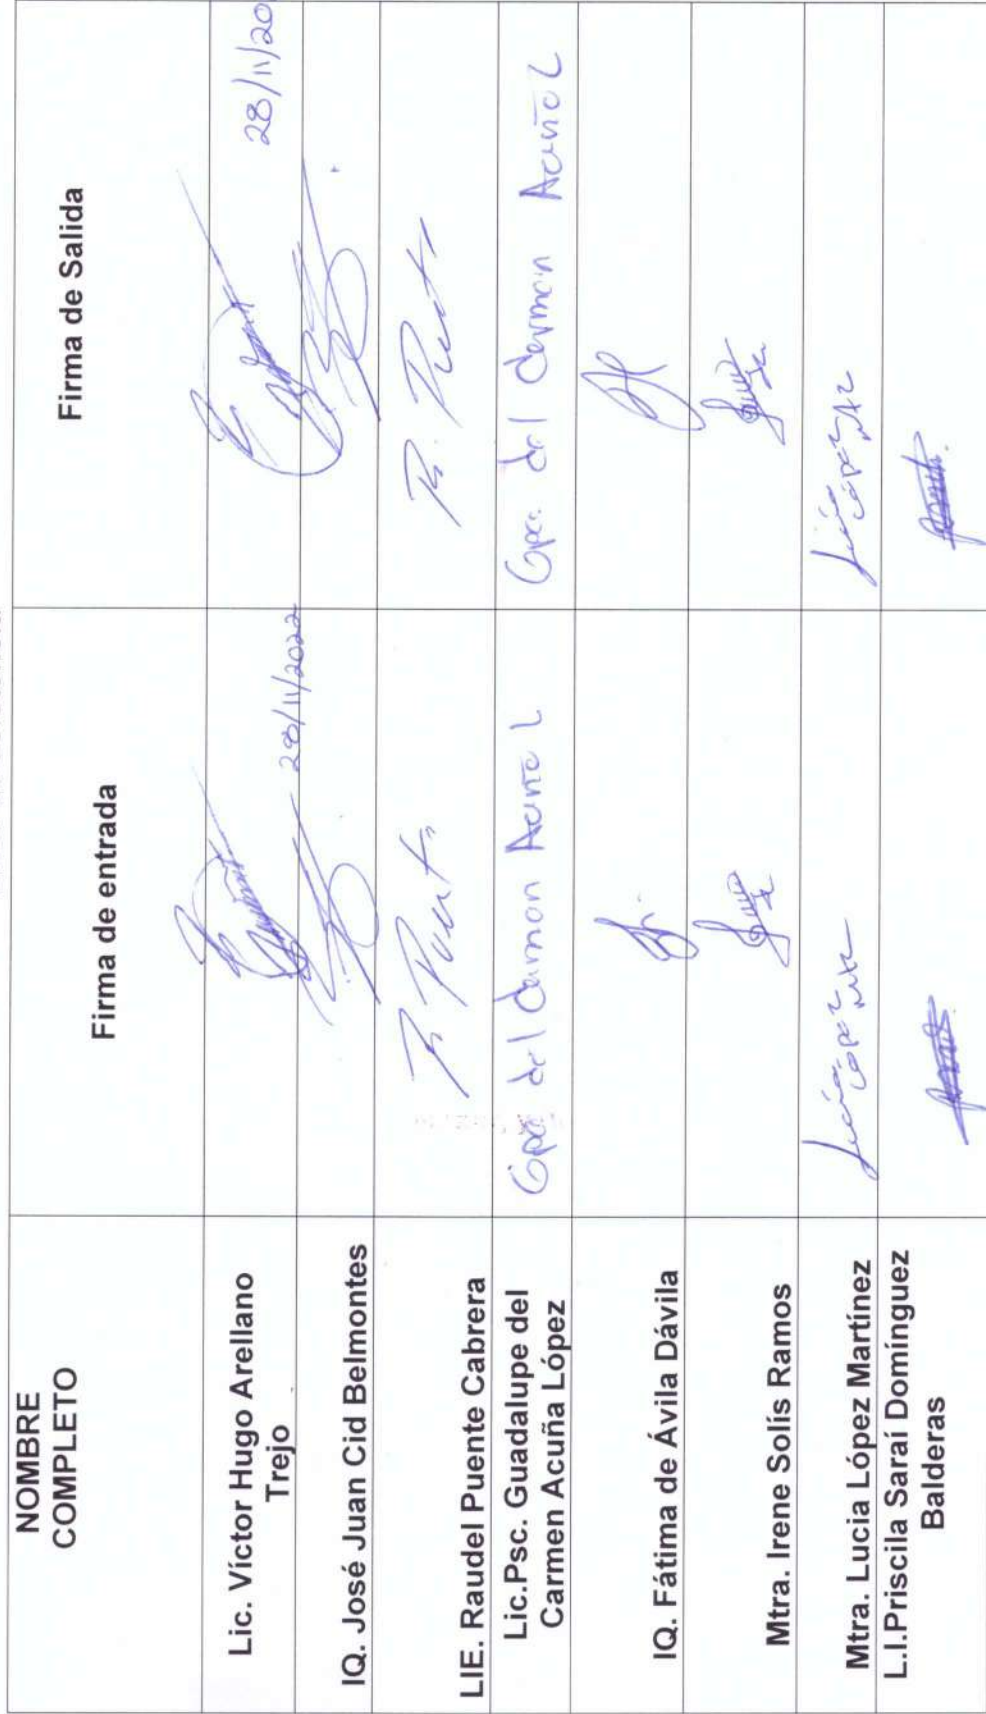 NOMBRE
COMPLETO
Firma de entrada
Firma de Salida
Lic. Víctor Hugo Arellano
Trejo
28/11/2022
28/11/20
IQ. José Juan Cid Belmontes
LIE. Raudel Puente Cabrera
R. Puente
Lic.Psc. Guadalupe del
Carmen Acuña López
Gpe. del Carmen Acuña L
Gpe. del Carmen Acuña L
IQ. Fátima de Ávila Dávila
Mtra. Irene Solís Ramos
Mtra. Lucia López Martínez
Lucía
López
Lucía
López
L.I.Priscila Saraí Domínguez
Balderas